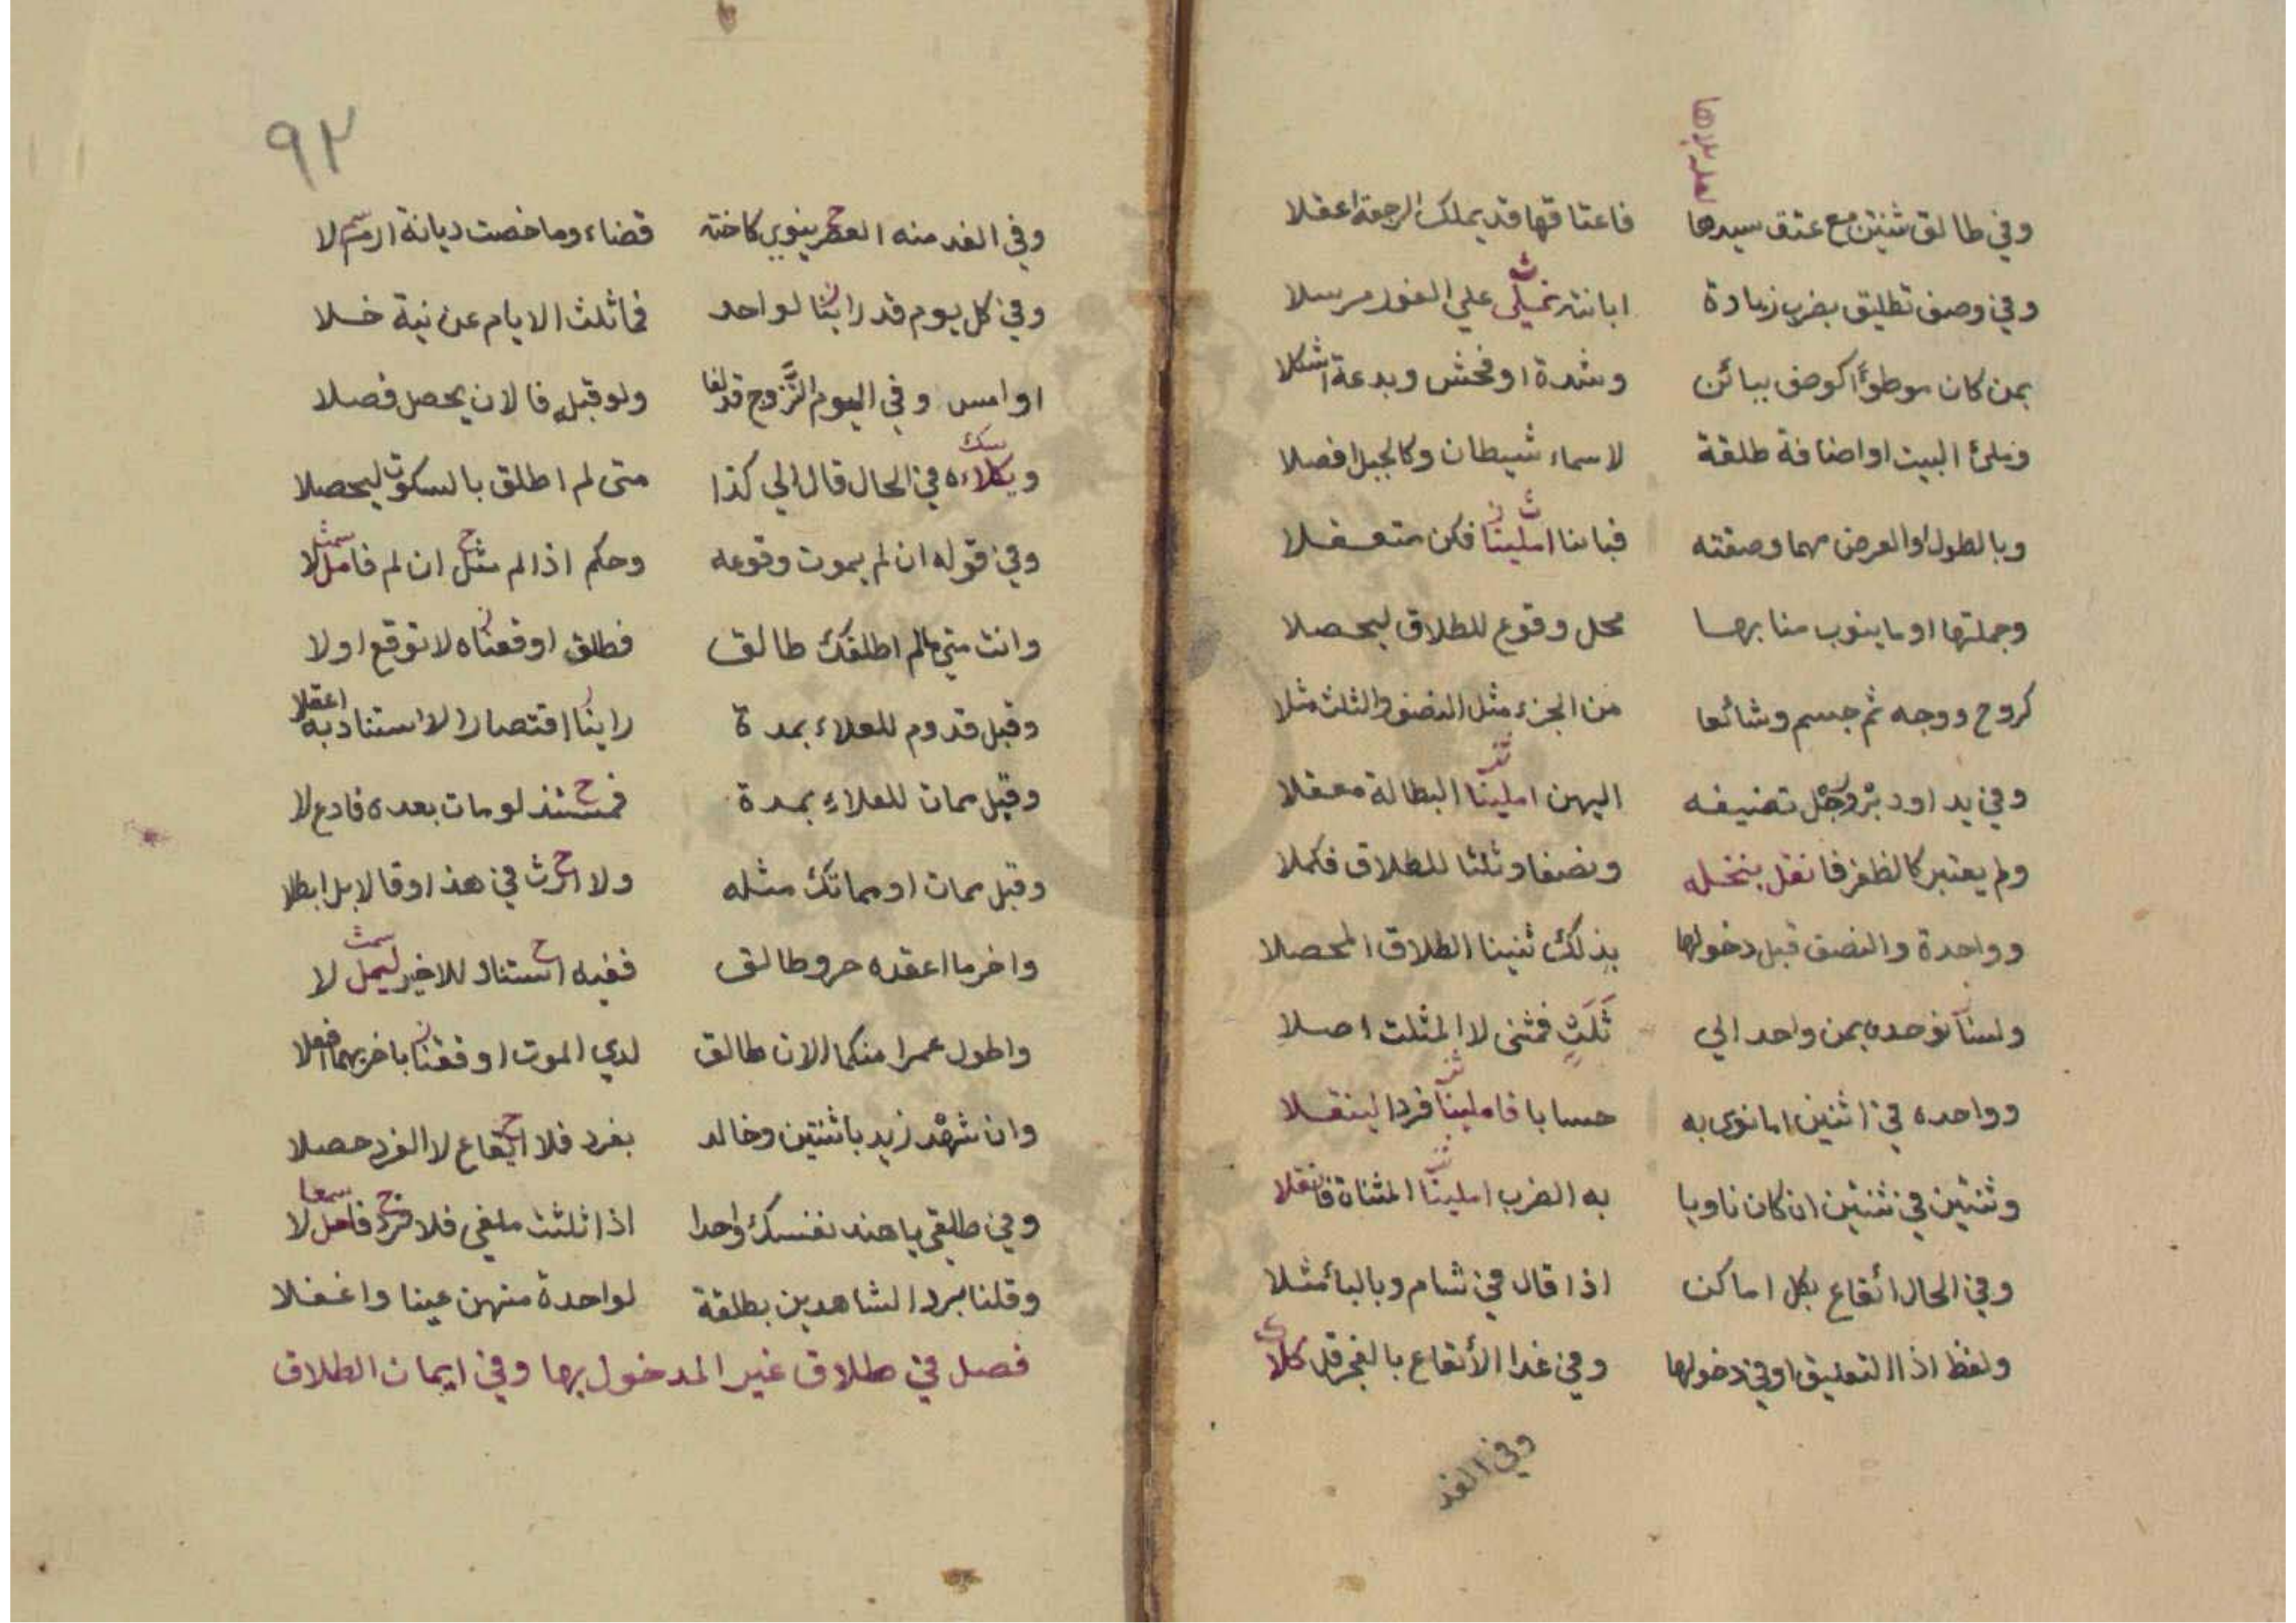 لعله بزها
وفي طالق ثنتين مع عتق سيدها فاعتاقها قد يملك الرجعة اعقلا
وفي وصف تطليق بضرب زيادة ابانته علي الفور مرسلا
بمن كان موطوأ كوصف ببائن وشدة او فحش وبدعة اشكلا
وملئ البيت او اضافة طلقة لاسماء شيطان وكالجبل افصلا
وبالطول او العرض مهما وصفته املينا فكن متعقلا
وجملتها او ما ينوب منابها محل وقوع للطلاق ليحصلا
كروح ووجه ثم جسم وشائعا من الجزء مثل النصف والثلث مثلا
وفي يد او دبر ورجل تضيفه اليهن املينا البطالة معقلا
ولم يعتبر كالظفر فانقل بنخله ونصفا وثلثا للطلاق فكملا
وواحدة والنصف قبل دخولها بذلك ثنينا الطلاق المحصلا
ولسنا نوحده بمن واحد الي ثلث فمثنى لا المثلث اصلا
وواحده في اثنين اما نوى به حسابا فاملينا فردا لينقلا
وثنتين في ثنتين ان كان ناويا به الضرب املينا المثناة فانقلا
وفي الحال ائقاع بكل اماكن اذا قال في شام وبالبا مثلا
ولفظ اذا التعليق او في دخولها وفي غدا الأنقاع بالفجر قل كلا
وفي الغد
٩٢
وفي الغد منه العصر ينوي كاخته قضاء وما خصت ديانة ارمس لا
وفي كل يوم قد راينا لواحد فما ثلث الايام عن نية خلا
او امس وفي اليوم التزوج قد لغا ولو قبله فالان يحصل فصلا
ويكلاءه في الحال قال الي كذا متى لم اطلق بالسكوت ليحصلا
وفي قوله ان لم يموت وقوعه وحكم اذا لم مثل ان لم فامل لا
وانت متى مالم اطلقك طالق فطلق اوقعناه لا توقع اولا
وقبل قدوم للعلاء بمدة راينا اقتصارا لا استناد به اعقلا
وقبل ممات للعلاء بمدة فمستند لو مات بعده فادع لا
وقبل ممات او مماتك مثله ولا ارث في هذا وقالا بل ابطلا
واخر ما اعقده حر وطالق ففيه استناد للاخير ليمل لا
واطول عمرا منكما الان طالق لدي الموت اوقفنا باخريهما افعلا
وان شهد زيد باثنتين وخالد بفرد فلا ايقاع لا الفرد حصلا
وفي طلقي يا هند نفسك واحدا اذا ثلثت ملغى فلا فرد فامل لا
وقلنا برد الشاهدين بطلقة لواحدة منهن عينا واغفلا
فصل في طلاق غير المدخول بها وفي ايمان الطلاق